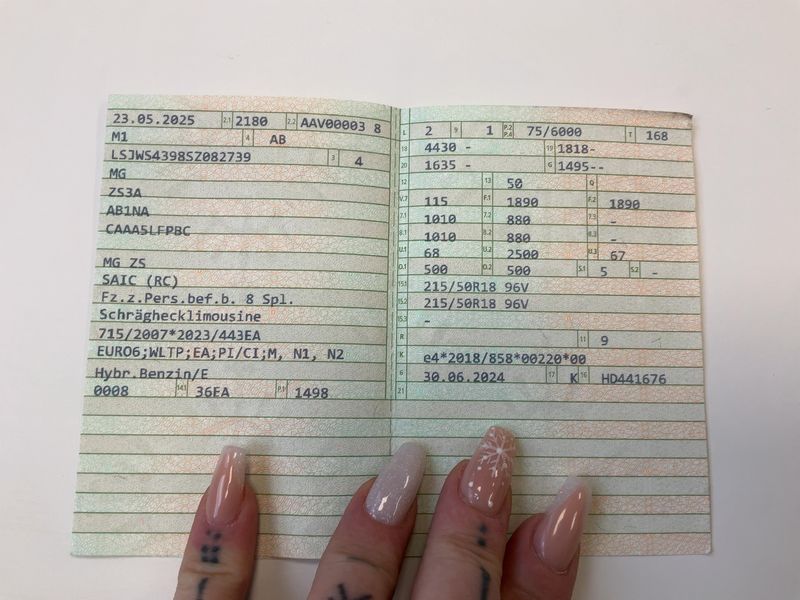 23.05.2025 2.1 2180 2.2 AAV00003 8
M1 4 AB
LSJWS4398SZ082739 3 4
MG
ZS3A
AB1NA
CAAA5LFPBC
MG ZS
SAIC (RC)
Fz.z.Pers.bef.b. 8 Spl.
Schräghecklimousine
715/2007*2023/443EA
EURO6;WLTP;EA;PI/CI;M, N1, N2
Hybr.Benzin/E
0008 14.1 36EA P.1 1498
L 2 9 1 P.2 P.4 75/6000 T 168
18 4430 - 19 1818-
20 1635 - G 1495--
12 13 50 Q
V.7 115 F.1 1890 F.2 1890
7.1 1010 7.2 880 7.3 -
8.1 1010 8.2 880 8.3 -
U.1 68 U.2 2500 U.3 67
O.1 500 O.2 500 S.1 5 S.2 -
15.1 215/50R18 96V
15.2 215/50R18 96V
15.3 -
R 11 9
K e4*2018/858*00220*00
6 30.06.2024 17 K 16 HD441676
21